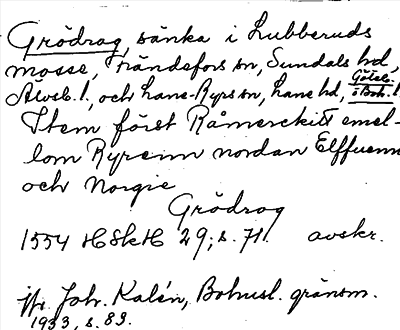 Grödrag, sänka i Lubberuds
mosse, Frändefors sn, Sundals hd,
Älvsb. l., och Lane-Ryrs sn, Lane hd, Göteb. o Boh. l.
Item först Råmerckitt emel-
lom Ryrenn nordan Elffuenn
och Norgie
Grödrog
1554 HSkH 29; s. 71. avskr.
Jfr. Joh. Kalén, Bohusl. gränsm.
1933, s. 89.